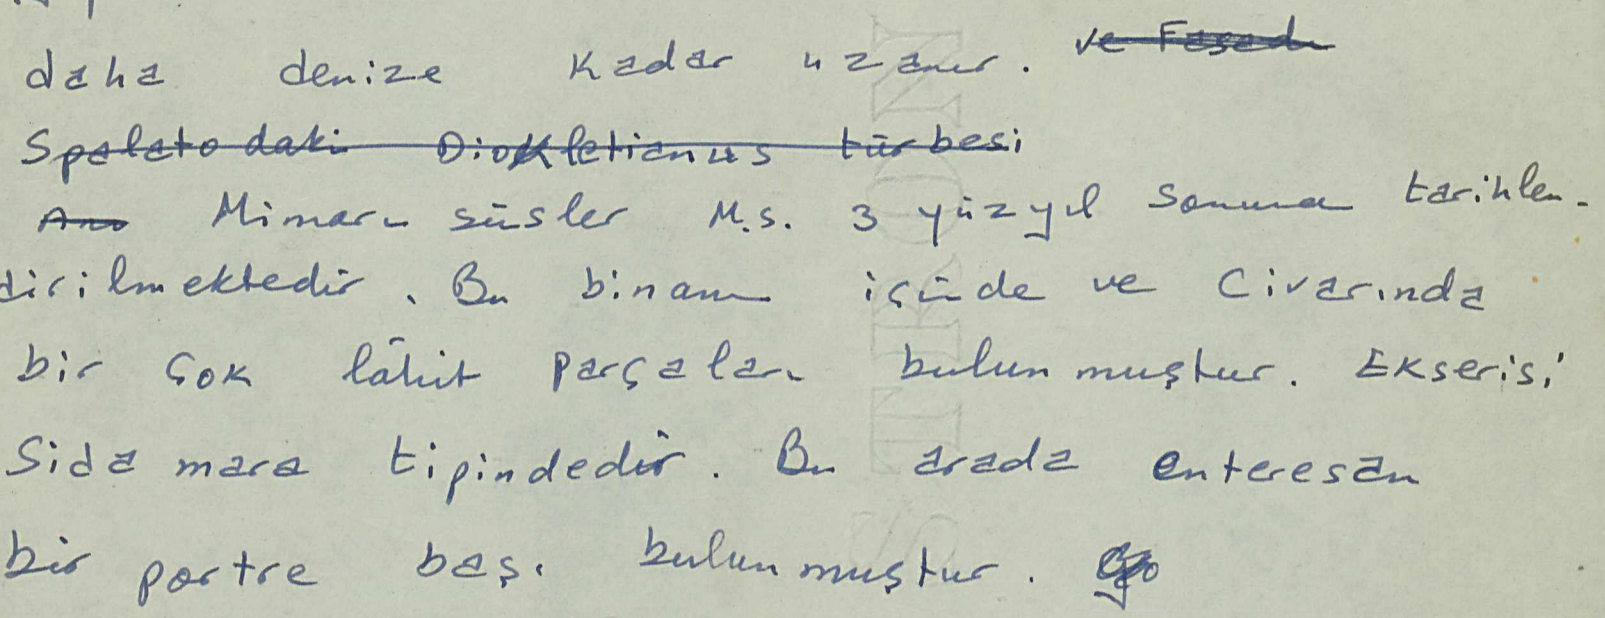 daha denize kadar uzanır. ve Fasadı
Spalato daki Diokletianus türbesi
Mimari süsler M.S. 3 yüzyıl sonuna tarihlen-
dirilmektedir. Bu binanın içinde ve Civarında
bir çok lâhit parçaları bulunmuştur. Ekserisi
Sida mara tipindedir. Bu arada enteresan
bir portre başı bulunmuştur.